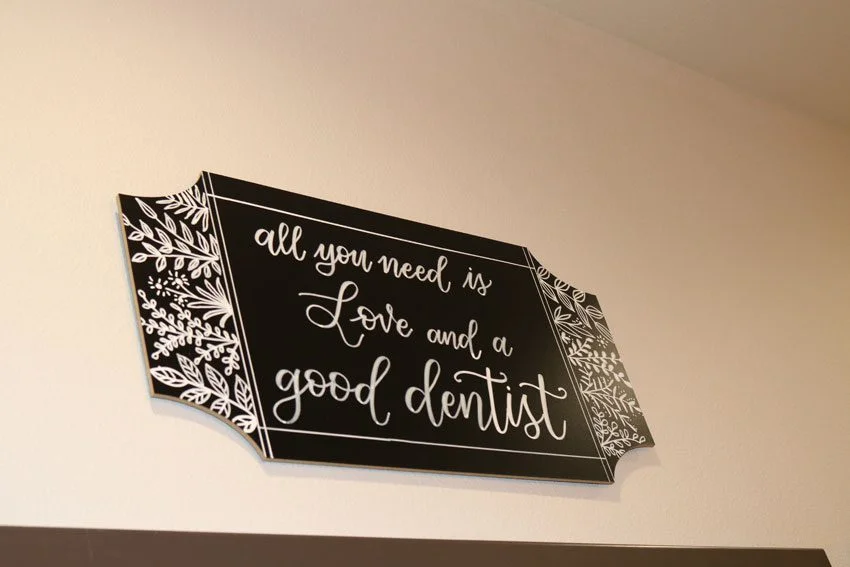 all you need is
Love and a
good dentist